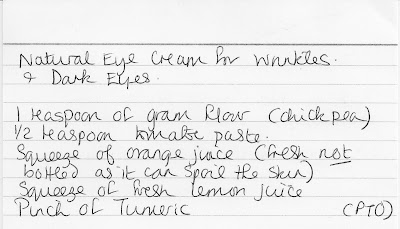 Natural Eye Cream for Wrinkles.
& Dark Eyes.
1 teaspoon of gram flour (chickpea)
1/2 teaspoon tomatoe paste.
Squeeze of orange juice (fresh not
bottled as it can spoil the skin)
Squeeze of fresh lemon juice
Pinch of Tumeric (PTO)